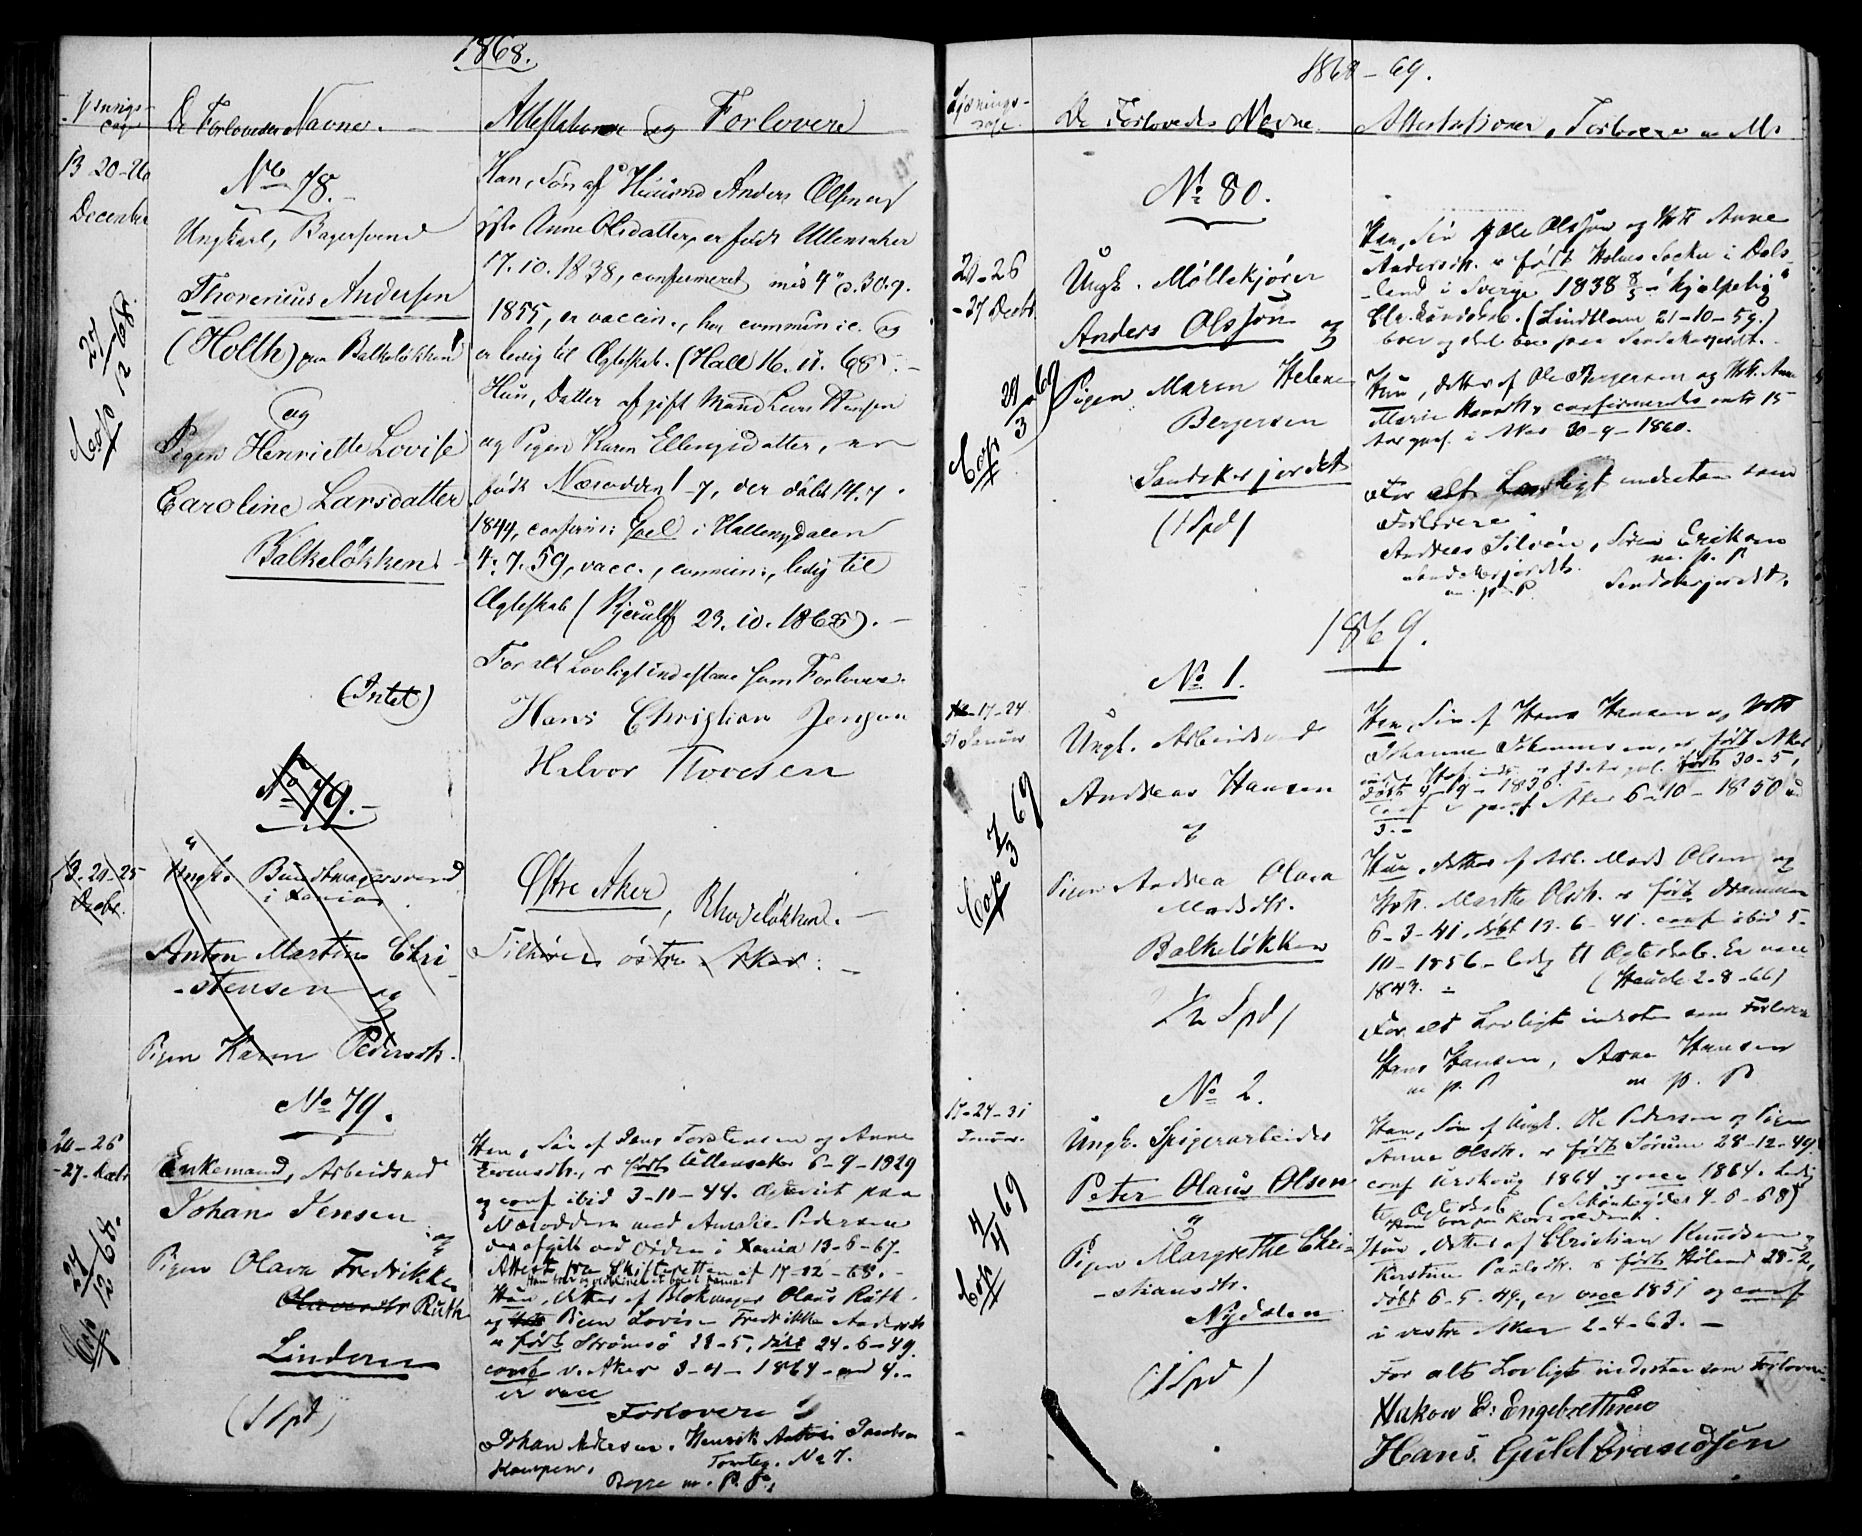 1868.
De Forlovedes Navne.
Attestationer og Forlovere
13-20-26
December
No 78.
Ungkarl, Bagersvend
Thorenius Andersen
(Holth) paa Balkeløkken
og
Pigen Henriette Lovise
Caroline Larsdatter
Balkeløkken
(Intet)
Cop 27/12 68.
Han, Søn af Huusmd Anders Olsen og
Anne Olsdatter, er født Ullensaker
17.10.1838, confirmeret med 30.9.
1855, er vaccin., har commun ic. og
er ledig til Ægteskab. (Hall 16.11.68). -
Hun, Datter af gift Mand Lars Hansen
og Pigen Karen Ellingsdatter, er
født Næsodden 1-7, der døbt 14.7.
1844, confirm: i Hallingdalen
4.7.59, vacc., commun:, ledig til
Ægteskab (Kjerulf 23.10.1868). -
For alt Lovligt indestaae som Forlovere
Hans Christian Jensen
Halvor Thovesen
No 79.
13-20-25
Decbr.
Ungk. Bundtmagersvend
i Xania
Anton Martin Chri-
-stensen og
Pigen Karen Pedersdt.
Østre Aker, Rhodeløkken. -
Tilhører østre Aker. -
No 79.
20-26
-27. Decbr
Enkemand, Arbeidsmd
Johan Jensen
og
Pigen Olava Fredrikke
Olavesdtr Ruth
Lindern
(1 Spd)
Cop 27/12 68.
Han, Søn af Jens Torstensen og Anne
Evensdt., er født Ullensaker 6-9-1829
og conf ibid 3-11-44. Ægteviet paa
Næsodden med Amalie Pedersen
der afgik ved Døden i Xania 13-6-67.
Attest fra Skifteretten af 17-12-68. -
Hun, Datter af Blokmager Olaus Ruth
og Pigen Lovise Fredrikke Andersdt
er født Strømsø 28-5, døbt 24-6-49
conf v. Aker 3-4-1864 -
er vacc
Forlovere
Johan Andersen, Henrik Anton Jacobsen
Kampen, Tomteg. No 7.
Begge m. P. P.,
1868-69.
Lysnings-
dage
De Forlovedes Navne.
Attestationer, Forlovere m M.
No 80.
20-26
-27 Decbr
Ungk. Møllekjører
Anders Olsson og
Pigen Maren Helene
Bergersen
Sandakerjordet
(1 Spd)
Cop 29/3 69
Han, Søn af Ole Olsson og Hst Anne
Andersdt. er født Holms Socken i Dals-
-land i Sverige 1838 8/5 - "hjelpelig"
Chr. kundskab. (Lindblom 21-10-59.)
bor og skal boe paa Sandakerjordet.
Hun, datter af Ole Bergersen og Hst. Anne
Marie Hansdt, confirmeret
i Aker 30-9-1860.
For alt Lovligt indestaa som
Forlovere
Andreas Silvén, Søren Eriksen
Sandakerjordet. m. p. P
m p P Sandakerjordet.
1869.
No 1.
10-17-24
31 Januar
Ungk. Arbeidsmd
Andreas Hansen
og
Pigen Andrea Olava
Madsdt.
Balkeløkken
1/2 Spd)
Cop 7/3 69
Han, Søn af Hans Hansen og Hst
Johanne Johannesen, er født Aker
født 30-5,
døbt 4-9-1836.
conf i Aker 6-10-1850
3. -
Hun, datter af Arb. Mads Olsen og
Hst. Marthe Olsdt. er født Drammen
6-3-41, døbt 13-6-41. conf ibid 5-
10-1856 - ledig til Ægteskab. Er vacc
1843. - (Haude 2-8-66)
For alt Lovligt indestaa som Forlovere
Hans Hansen, Arne Hansen
m p. P m p. P
No 2.
17-24-31
Januar.
Ungk. Spigerarbeider
Peter Olaus Olsen
og
Pigen Margrethe Chri-
-stiansdt.
Nydalen
(1 Spd)
Cop 4/4 69
Han, Søn af Ungk. Ole Pedersen og Pigen
Anne Olsdt. er født Sørum 28-12-49
conf Urskoug 1864, og vacc 1864. Ledig
til Ægteskab (Schønheyder 4-6-68)
Hun, Datter af Christian Knudsen og
Kerstine Paulsdt. er født Høland 28-2,
døbt 6-5-49, er vacc 1851 og conf
i vestre Aker 2-4-63. -
For alt Lovligt indestaa som Forlovere
Hakon E: Engebrethsen
Hans Guldbrandsen